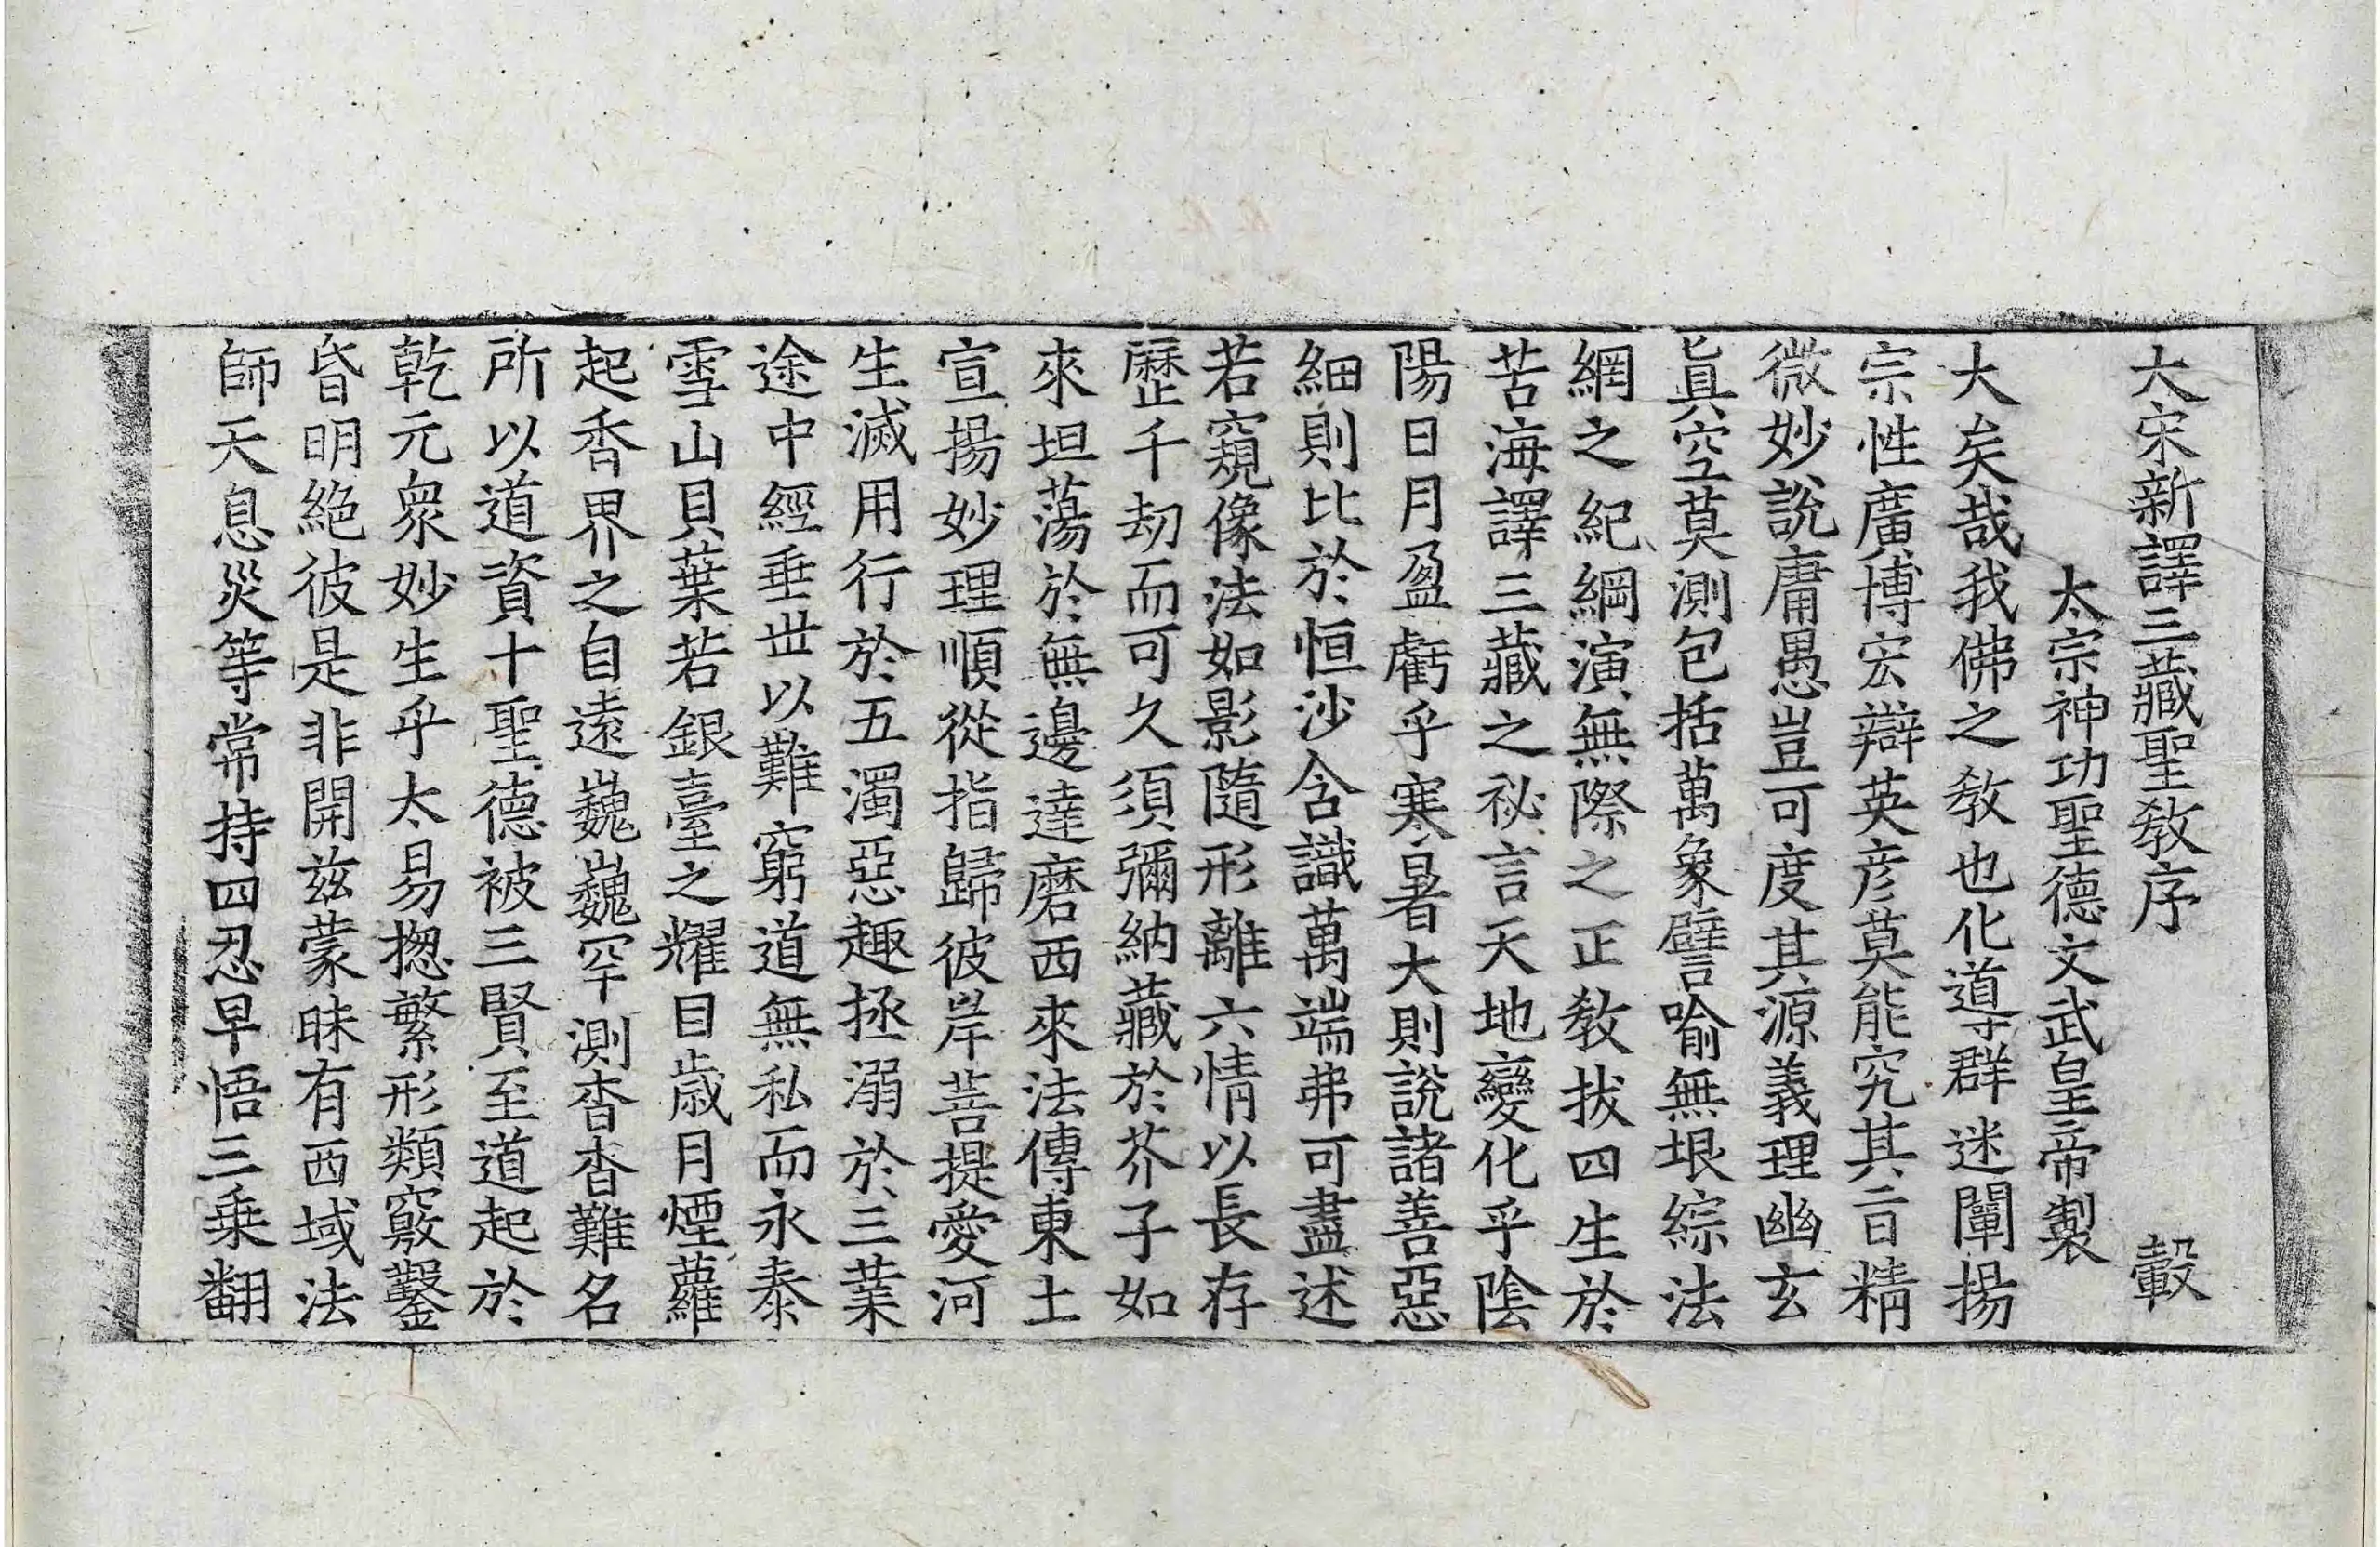 大宋新譯三藏聖教序 轂
太宗神功聖德文武皇帝製
大矣哉我佛之教也化導群迷闡揚
宗性廣博宏辯英彦莫能究其旨精
微妙說庸愚豈可度其源義理幽玄
真空莫測包括萬象譬喻無垠綜法
網之紀綱演無際之正教拔四生於
苦海譯三藏之祕言天地變化乎陰
陽日月盈虧乎寒暑大則說諸善惡
細則比於恒沙含識萬端弗可盡述
若窺像法如影隨形離六情以長存
歷千劫而可久須彌納藏於芥子如
來坦蕩於無邊達磨西來法傳東土
宣揚妙理順從指歸彼岸菩提愛河
生滅用行於五濁惡趣拯溺於三業
途中經垂世以難窮道無私而永泰
雪山貝葉若銀臺之耀目歲月煙蘿
起香界之自遠巍巍罕測杳杳難名
所以道資十聖德被三賢至道起於
乾元衆妙生乎太易揔繁形類竅鑿
昏明絕彼是非開兹蒙昧有西域法
師天息災等常持四忍早悟三乘翻